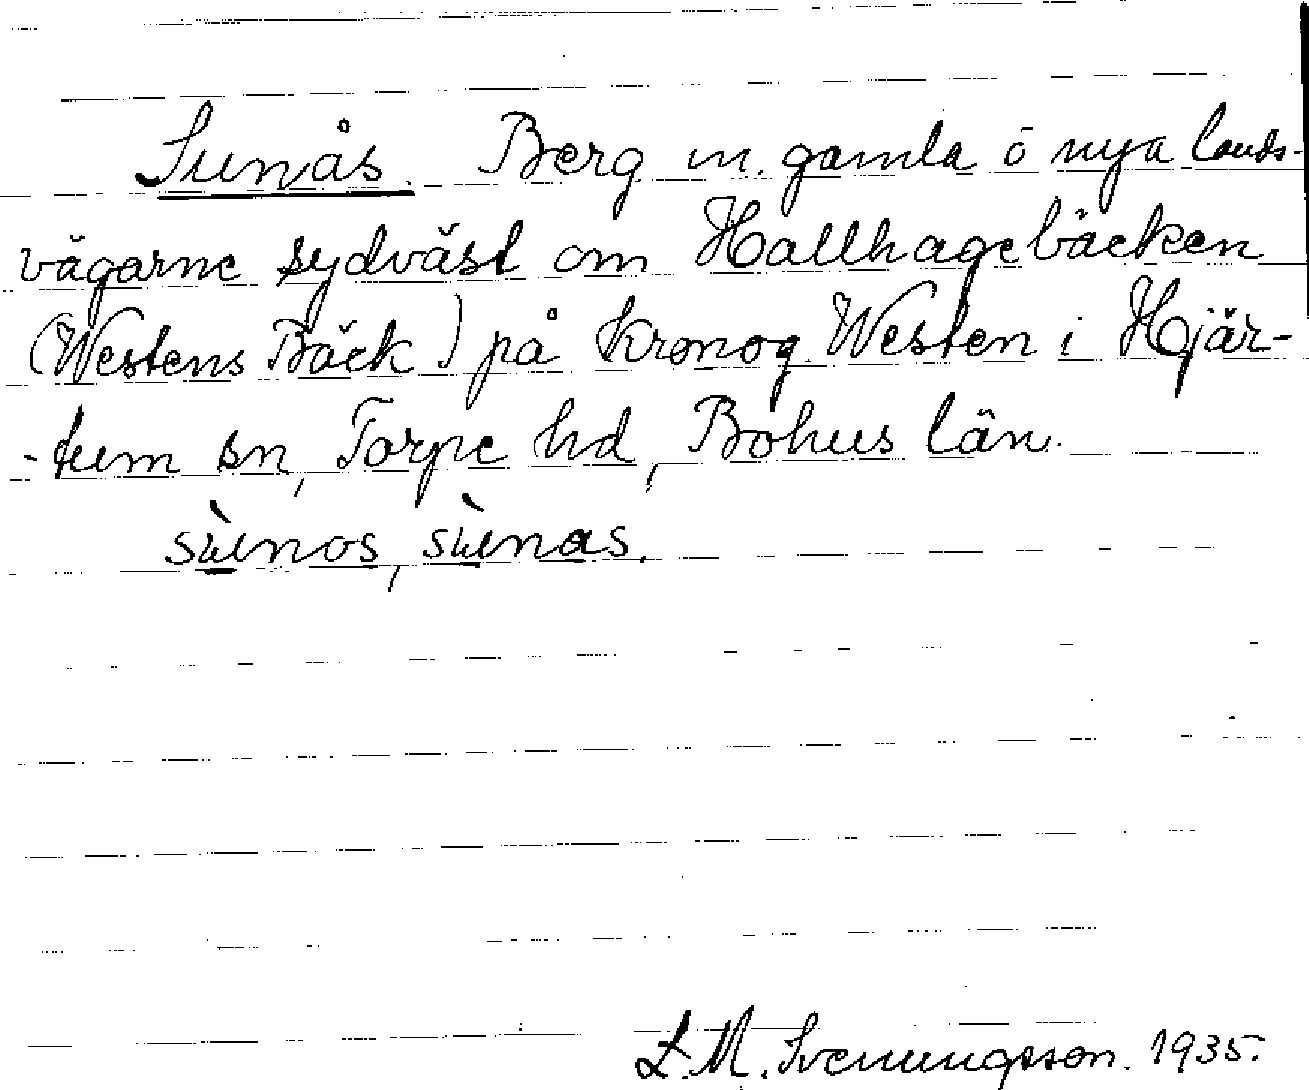 Sunås. Berg m. gamla o nya lands-
vägarne sydväst om Hallhagebäcken
(Westens Bäck) på Kronog Westen i Hjär-
-tum sn, Torpe hd, Bohus län.
sùnos, sùnas.
L. M. Svenungsson. 1935.